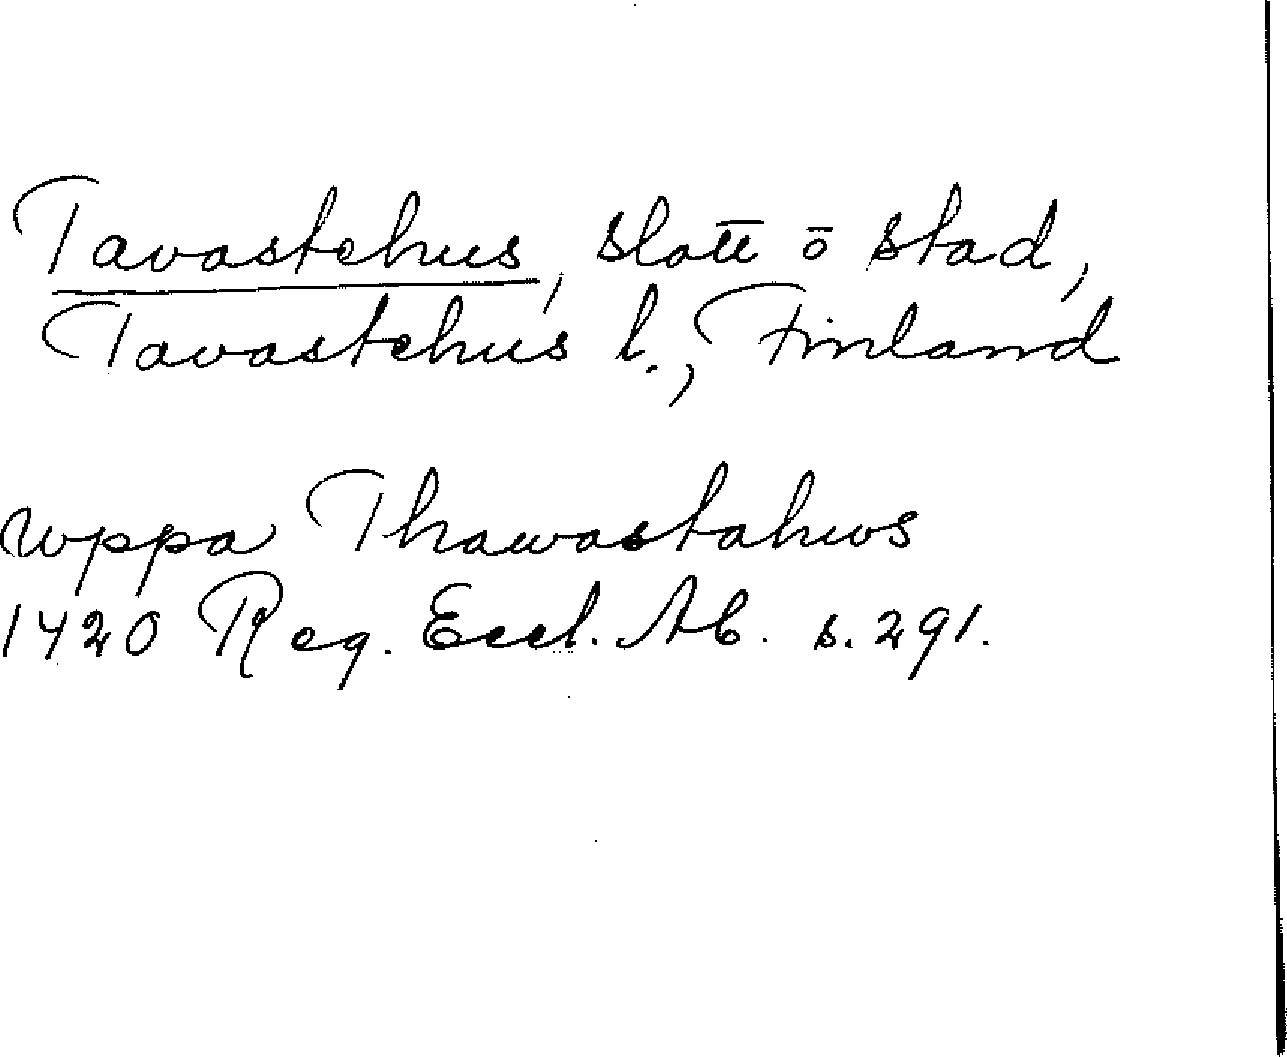 Tavastehus, slott o stad,
Tavastehus l., Finland
wppa Thawastahws
1420 Reg. Eccl. Ab. s. 291.